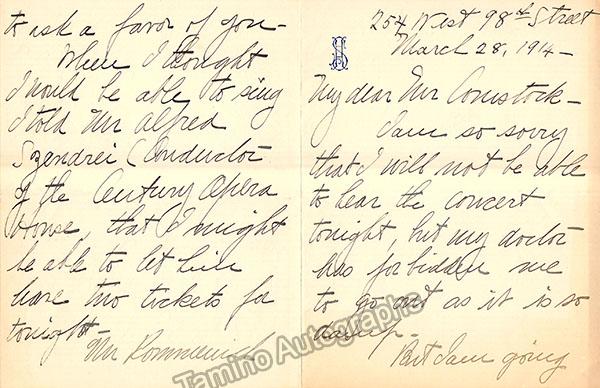 254 West 98th Street
March 28, 1914-
My dear Mr Comstock-
I am so sorry
that I will not be able
to hear the concert
tonight, but my doctor
has forbidden me
to go out as it is so
damp.
But I am going
to ask a favor of you-
When I thought
I would be able to sing
I told Mr Alfred
Szendrei (Conductor
of the Century Opera
House, that I might
be able to let him
have two tickets for
tonight-
Mr
Tamino Autographs